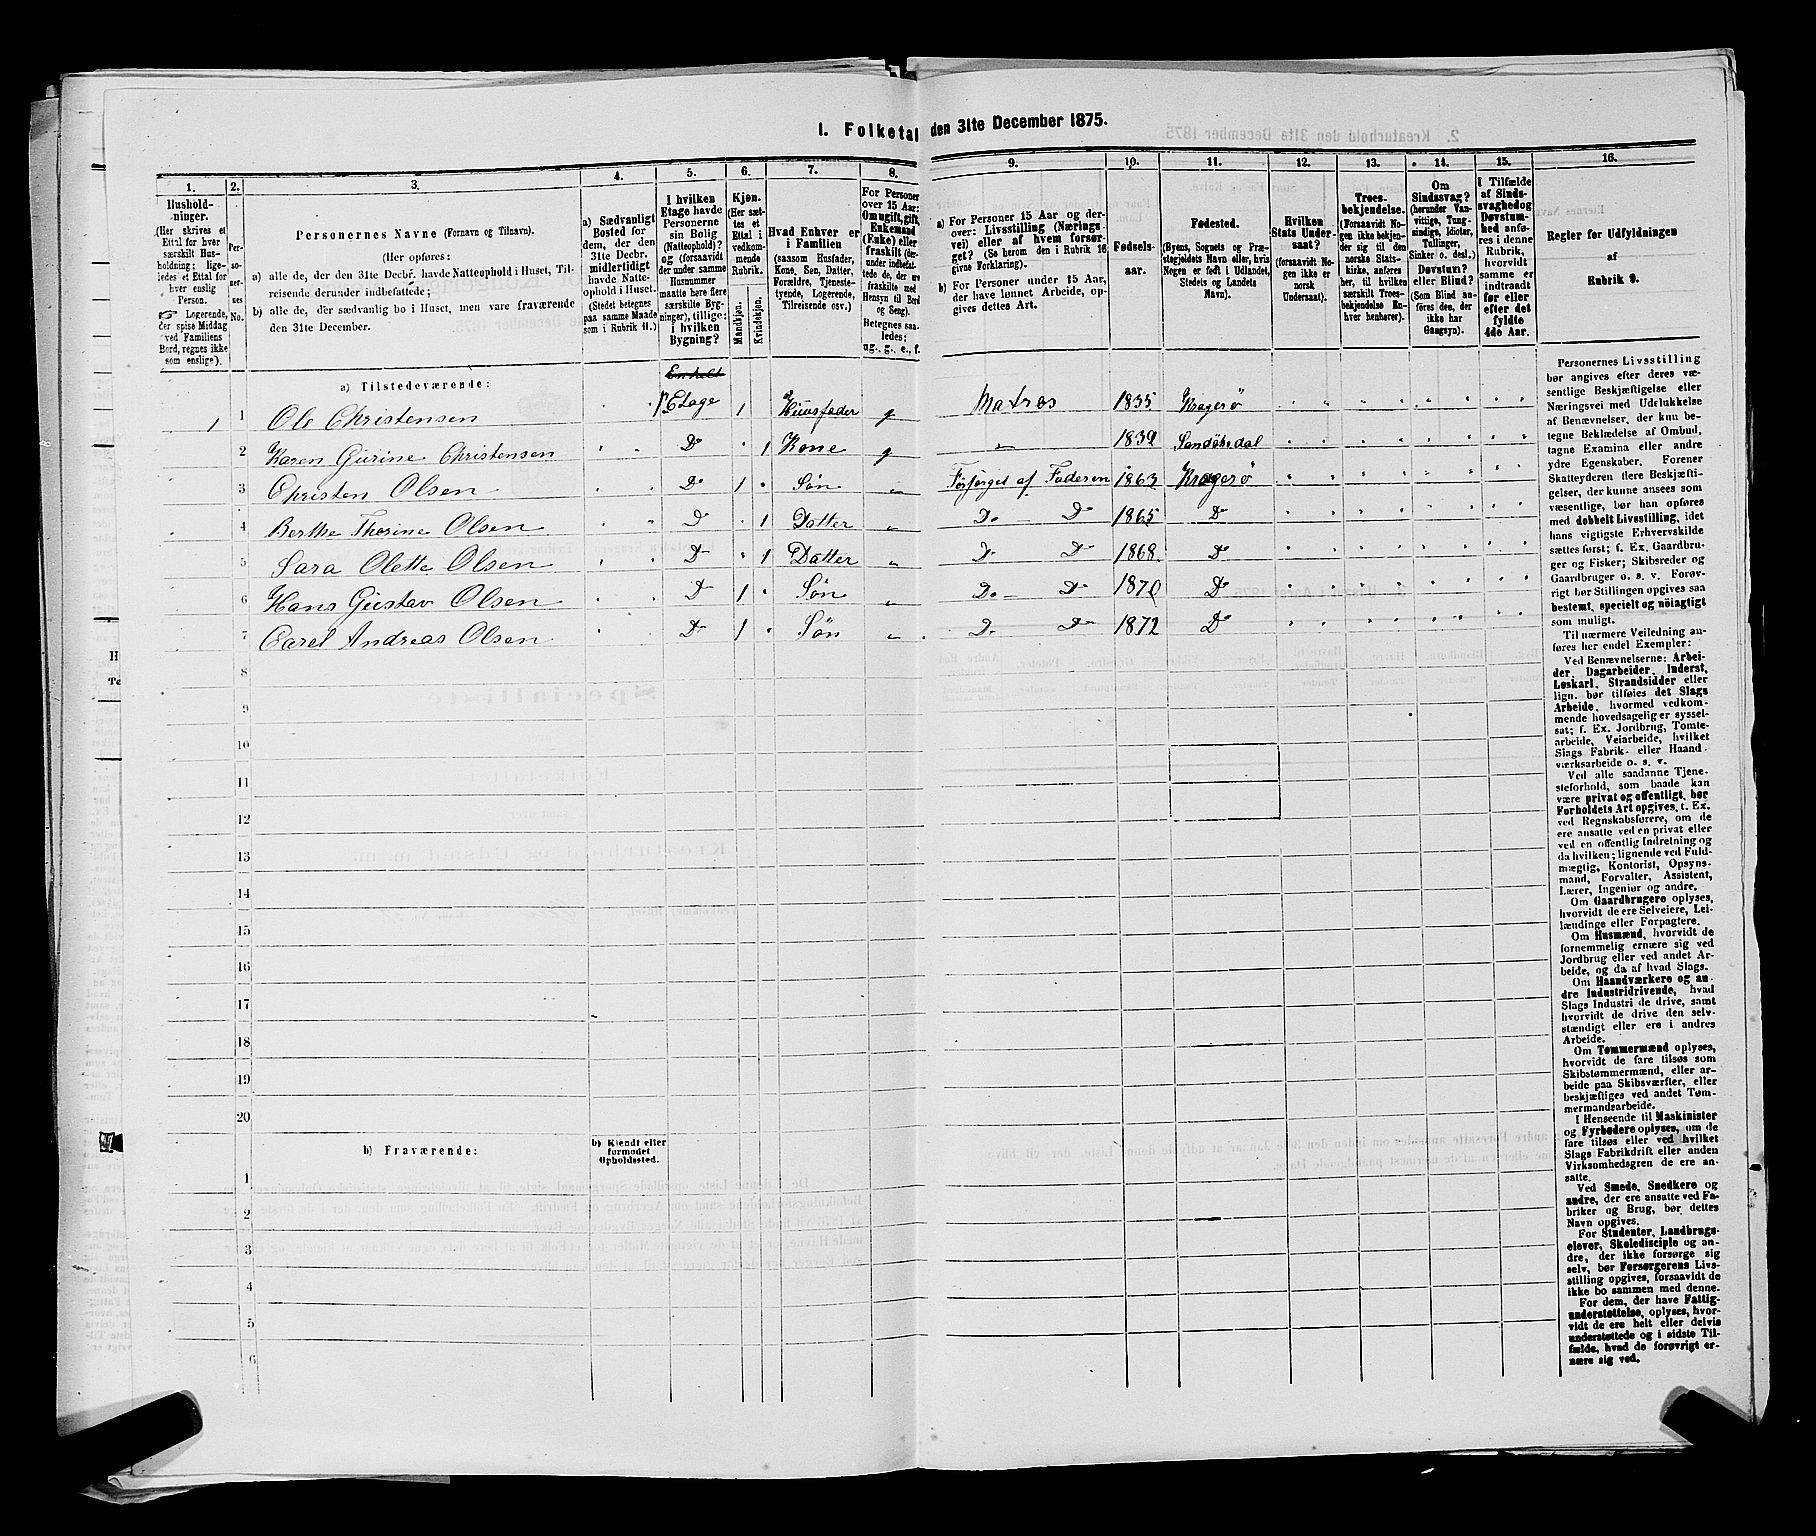 1. Folketal den 31te December 1875.
1. 2. 3. 4. 5. 6. 7. 8. 9. 10. 11. 12. 13. 14. 15. 16.
Hushold-
ninger.
(Her skrives et
Ettal for hver
særskilt Hus-
holdning; lige-
ledes et Ettal for
hver enslig
Person.
Logerende,
der spise Middag
ved Familiens
Bord, regnes ikke
som enslige).
Per-
so-
ner-
nes
No.
Personernes Navne (Fornavn og Tilnavn).
(Her opføres:
a) alle de, der den 31te Decbr. havde Natteophold i Huset, Til-
reisende derunder indbefattede;
b) alle de, der sædvanlig bo i Huset, men vare fraværende
den 31te December.
a) Sædvanligt
Bosted for
dem, der den
31te Decbr.
midlertidigt
havde Natte-
ophold i Huset.
(Stedet betegnes
paa samme Maade
som i Rubrik 11.)
I hvilken
Etage havde
Personerne
sin Bolig
(Natteophold)?
og (forsaavidt
der under samme
Husnummer
maatte høre flere
særskilte Byg-
ninger), tillige:
i hvilken
Bygning?
Kjøn.
(Her sæt-
tes et
Ettal i
vedkom-
mende
Rubrik.
Mandkjøn.
Kvindekjøn.
Hvad Enhver er
i Familien
(saasom Husfader,
Kone, Søn, Datter,
Forældre, Tjeneste-
tyende, Logerende,
Tilreisende osv.)
For Personer
over 15 Aar:
Om ugift, gift,
Enkemand
(Enke) eller
fraskilt (der-
under indbefat-
tede de, der ere
fraskilte med
Hensyn til Bord
og Seng).
Betegnes saa-
ledes:
ug., g., e., f.
a) For Personer 15 Aar og der-
over: Livsstilling (Nærings-
vei) eller af hvem forsør-
get? (Se herom den i Rubrik 16
givne Forklaring).
b) For Personer under 15 Aar,
der have lønnet Arbeide, op-
gives dettes Art.
Fødsels-
aar.
Fødested.
(Byens, Sognets og Præ-
stegjeldets Navn eller, hvis
Nogen er født i Udlandet,
Stedets og Landets
Navn).
Hvilken
Stats Under-
saat?
(forsaavidt No-
gen ikke er
norsk
Undersaat).
Troes-
bekjendelse.
(Forsaavidt No-
gen ikke bekjen-
der sig til den
norske Stats-
kirke, anføres
her, til hvilken
særskilt Troes-
bekjendelse En-
hver henhører).
Om
Sindssvag?
(herunder Van-
vittige, Tung-
sindige, Idioter,
Tullinger,
Sinker o. desl.)
Døvstum?
eller Blind?
(Som Blind an-
føres den, der
ikke har
Gangsyn).
I Tilfælde
af Sinds-
svaghed og
Døvstum-
hed anfø-
res i denne
Rubrik,
hvorvidt
samme er
indtraadt
før eller
efter det
fyldte
4de Aar.
Regler for Udfyldningen
af
Rubrik 9.
a) Tilstedeværende:
1 1 Ole Christensen 1ste Etage 1 Huusfader g Matros 1835 Kragerö
2 Karen Gurine Christensen Do 1 Kone g 1839 Sandökedal
3 Christen Olsen Do 1 Søn Forsørget af Faderen 1863 Kragerö
4 Berthe Thorine Olsen Do 1 Datter Do Do 1865 Do
5 Sara Olette Olsen Do 1 Datter Do Do 1868 Do
6 Hans Gustav Olsen Do 1 Søn Do Do 1870 Do
7 Carel Andreas Olsen Do 1 Søn Do Do 1872 Do
8
9
10
11
12
13
14
15
16
17
18
19
20
b) Fraværende:
b) Kjendt eller
formodet
Opholdssted.
1
2
3
4
5
6
Personernes Livsstilling
bør angives efter deres væ-
sentlige Beskjæftigelse eller
Næringsvei med Udelukkelse
af Benævnelser, der kun be-
tegne Beklædelse af Ombud,
tagne Examina eller andre
ydre Egenskaber. Forener
Skatteyderen flere Beskjæfti-
gelser, der kunne ansees som
væsentlige, bør han opføres
med dobbelt Livsstilling, idet
hans vigtigste Erhvervskilde
sættes først; f. Ex. Gaardbru-
ger og Fisker; Skibsreder og
Gaardbruger o. s. v. Forøv-
rigt bør Stillingen opgives saa
bestemt, specielt og nöiagtigt
som muligt.
Til nærmere Veiledning an-
føres her endel Exempler:
Ved Benævnelserne: Arbei-
der, Dagarbeider, Inderst,
Løskarl, Strandsidder eller
lign. bør tilføies det Slags
Arbeide, hvormed vedkom-
mende hovedsagelig er syssel-
sat; f. Ex. Jordbrug, Tomte-
arbeide, Veiarbeide, hvilket
Slags Fabrik- eller Haand-
værksarbeide o. s. v.
Ved alle saadanne Tjene-
steforhold, som baade kan
være privat og offentligt, bør
Forholdets Art opgives, t. Ex.
ved Regnskabsførere, om de
ere ansatte ved en privat eller
ved en offentlig Indretning og
da hvilken; lignende ved Fuld-
mægtig, Kontorist, Opsyns-
mand, Forvalter, Assistent,
Lærer, Ingeniør og andre.
Om Gaardbrugere oplyses,
hvorvidt de ere Selveiere, Lei-
lændinge eller Forpagtere.
Om Husmænd, hvorvidt de
fornemmelig ernære sig ved
Jordbrug eller ved andet Ar-
beide, og da af hvad Slags.
Om Haandværkere og an-
dre Industridrivende, hvad
Slags Industri de drive, samt
hvorvidt de drive den selv-
stændigt eller ere i andres
Arbeide.
Om Tømmermænd oplyses,
hvorvidt de fare tilsøs som
Skibstømmermænd, eller ar-
beide paa Skibsværfter, eller
beskjæftiges ved andet Tøm-
mermandsarbeide.
I Henseende til Maskinister
og Fyrbødere oplyses, om de
fare tilsøs eller ved hvilket
Slags Fabrikdrift eller anden
Virksomhedsgren de ere an-
satte.
Ved Smede, Snedkere og
andre, der ere ansatte ved Fa-
briker og Brug, bør dettes
Navn opgives.
For Studenter, Landbrugs-
elever, Skoledisciple og an-
dre, der ikke forsørge sig
selv, bør Forsørgerens Livs-
stilling opgives, forsaavidt de
ikke bo sammen med denne.
For dem, der have Fattig-
understøttelse, oplyses, hvor-
vidt de ere helt eller delvis
understøttede og i sidste Til-
fælde, hvad de forøvrigt er-
nære sig ved.